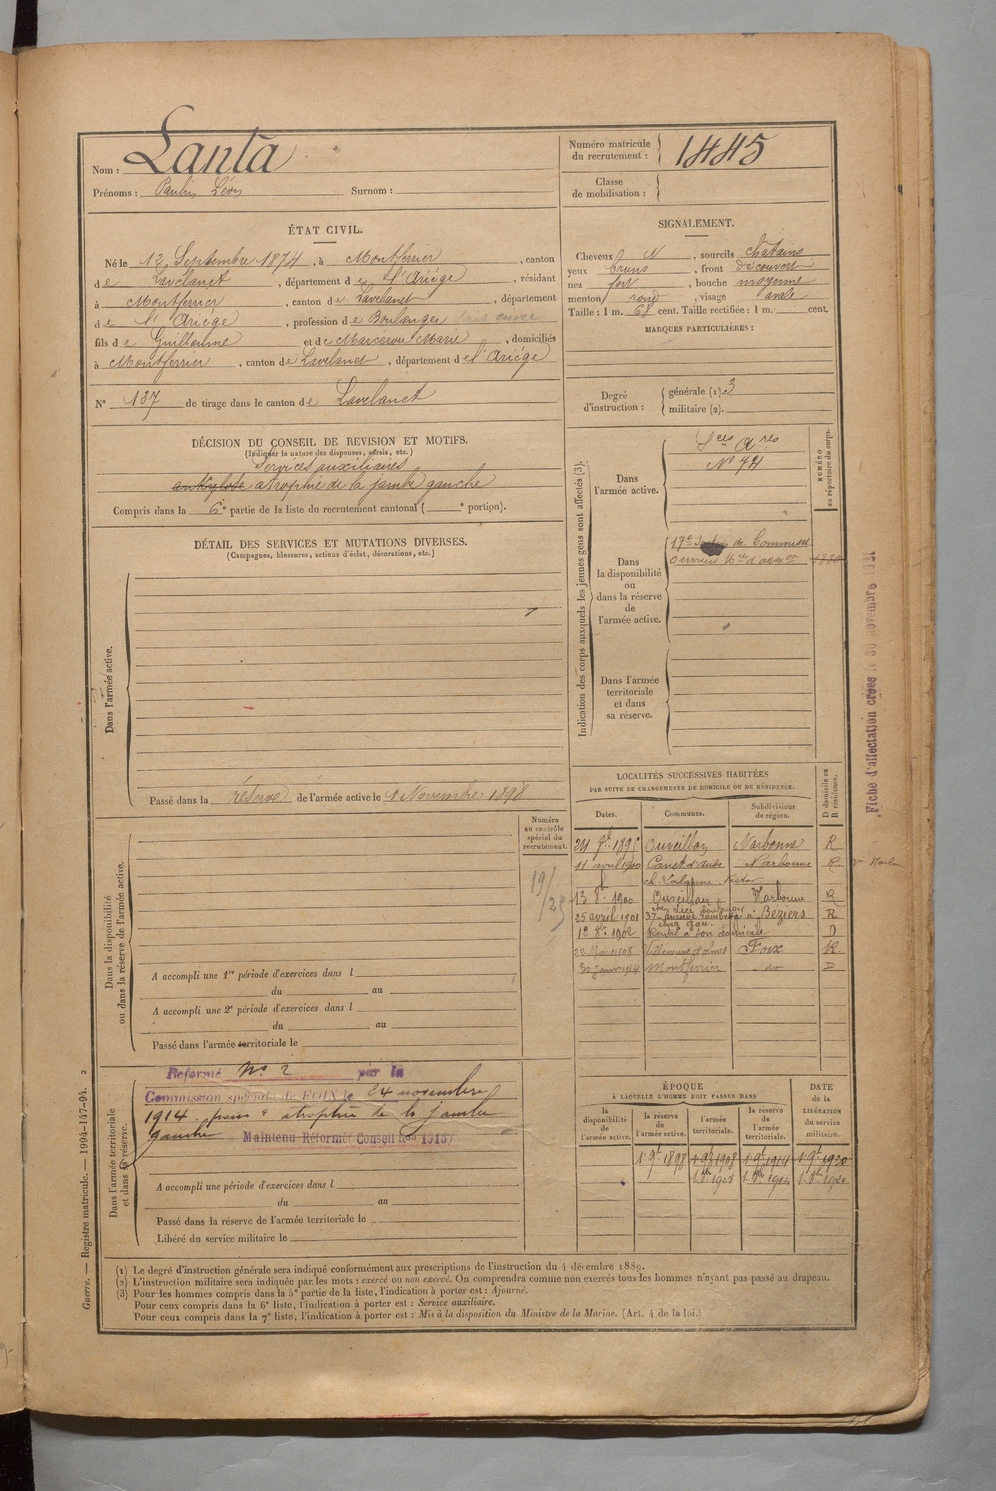 Nom : Lanta
Prénoms : Paulin Léon Surnom :
Numéro matricule du recrutement : 1445
Classe de mobilisation :
ÉTAT CIVIL.
Né le 12 Septembre 1874, à Montferrier, canton
de Lavelanet, département de l'Ariége, résidant
à Montferrier, canton de Lavelanet, département
de l'Ariége, profession de Boulanger
fils de Guillaume et de Marcerou Marie, domiciliés
à Montferrier, canton de Lavelanet, département de l'Ariége
N° 187 de tirage dans le canton de Lavelanet
SIGNALEMENT.
Cheveux N, sourcils chatains
yeux bruns, front découvert
nez fort, bouche moyenne
menton rond, visage ovale
Taille : 1 m. 68 cent. Taille rectifiée : 1 m. cent.
MARQUES PARTICULIÈRES :
Degré d'instruction : générale (1). 3
militaire (2).
DÉCISION DU CONSEIL DE REVISION ET MOTIFS.
(Indiquer la nature des dispenses, sursis, etc.)
Services auxiliaires
ankylose atrophie de la jambe gauche
Compris dans la 6e partie de la liste du recrutement cantonal ( e portion).
DÉTAIL DES SERVICES ET MUTATIONS DIVERSES.
(Campagnes, blessures, actions d'éclat, décorations, etc.)
Dans l'armée active.
Passé dans la réserve de l'armée active le 1 Novembre 1898
Indication des corps auxquels les jeunes gens sont affectés (3).
NUMÉRO au répertoire du corps.
Dans l'armée active.
Sces Ares
N° 74
Dans la disponibilité ou dans la réserve de l'armée active.
17e de Commis et
Ouvriers
Dans l'armée territoriale et dans sa réserve.
Fiche d'affectation créée le novembre
LOCALITÉS SUCCESSIVES HABITÉES
PAR SUITE DE CHANGEMENTS DE DOMICILE OU DE RÉSIDENCE.
Dates. Communes. Subdivisions de région. D domicile ou R résidence.
Ouveillan Narbonne R
11 avril 1900 Canet d'aude Narbonne R
13 8bre 1900 Ouveillan Narbonne R
25 avril 1901 37 avenue à Béziers R
1902 à son domicile D
1908 Villeneuve d'olmes Foix R
Montferrier do D
Dans la disponibilité ou dans la réserve de l'armée active.
Numéro au contrôle spécial du recrutement.
19/25
A accompli une 1re période d'exercices dans l
du au
A accompli une 2e période d'exercices dans l
du au
Passé dans l'armée territoriale le
Dans l'armée territoriale et dans sa réserve.
Réformé N° 2 par la
Commission spéciale de FOIX le 24 novembre
1914 pour « atrophie de la jambe
gauche » Maintenu Réformé (Conseil Ron 1915)
A accompli une période d'exercices dans l
du au
Passé dans la réserve de l'armée territoriale le
Libéré du service militaire le
ÉPOQUE
À LAQUELLE L'HOMME DOIT PASSER DANS
la disponibilité de l'armée active. la réserve de l'armée active. l'armée territoriale. la réserve de l'armée territoriale.
DATE de la LIBÉRATION du service militaire.
1.9bre 1898 1.9bre 1908 1.9bre 1914 1.9bre 1920
(1) Le degré d'instruction générale sera indiqué conformément aux prescriptions de l'instruction du 4 décembre 1889.
(2) L'instruction militaire sera indiquée par les mots : exercé ou non exercé. On comprendra comme non exercés tous les hommes n'ayant pas passé au drapeau.
(3) Pour les hommes compris dans la 5e partie de la liste, l'indication à porter est : Ajourné.
Pour ceux compris dans la 6e liste, l'indication à porter est : Service auxiliaire.
Pour ceux compris dans la 7e liste, l'indication à porter est : Mis à la disposition du Ministre de la Marine. (Art. 4 de la loi.)
Guerre. — Registre matricule. — 1994-147-94. 2